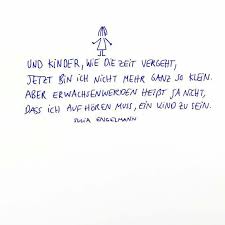 UND KINDER, WIE DIE ZEIT VERGEHT,
JETZT BIN ICH NICHT MEHR GANZ SO KLEIN.
ABER ERWACHSENWERDEN HEIẞT JA NICHT,
DASS ICH AUFHÖREN MUSS, EIN KIND ZU SEIN.
JULIA ENGELMANN